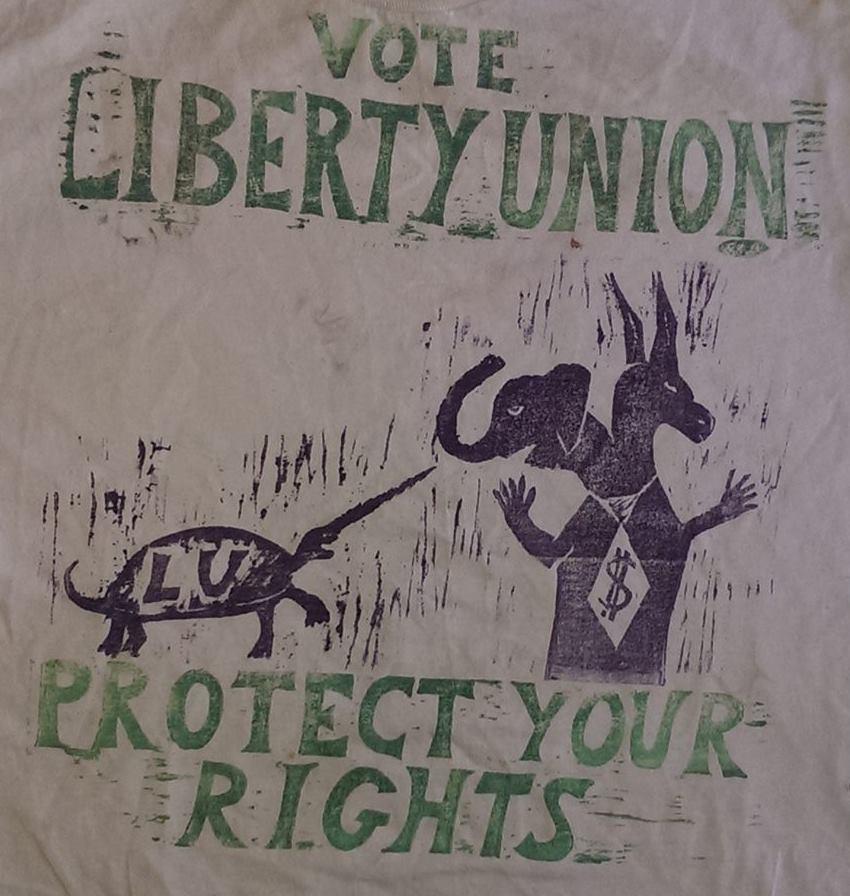 VOTE
LIBERTY UNION
LU
$
PROTECT YOUR
RIGHTS